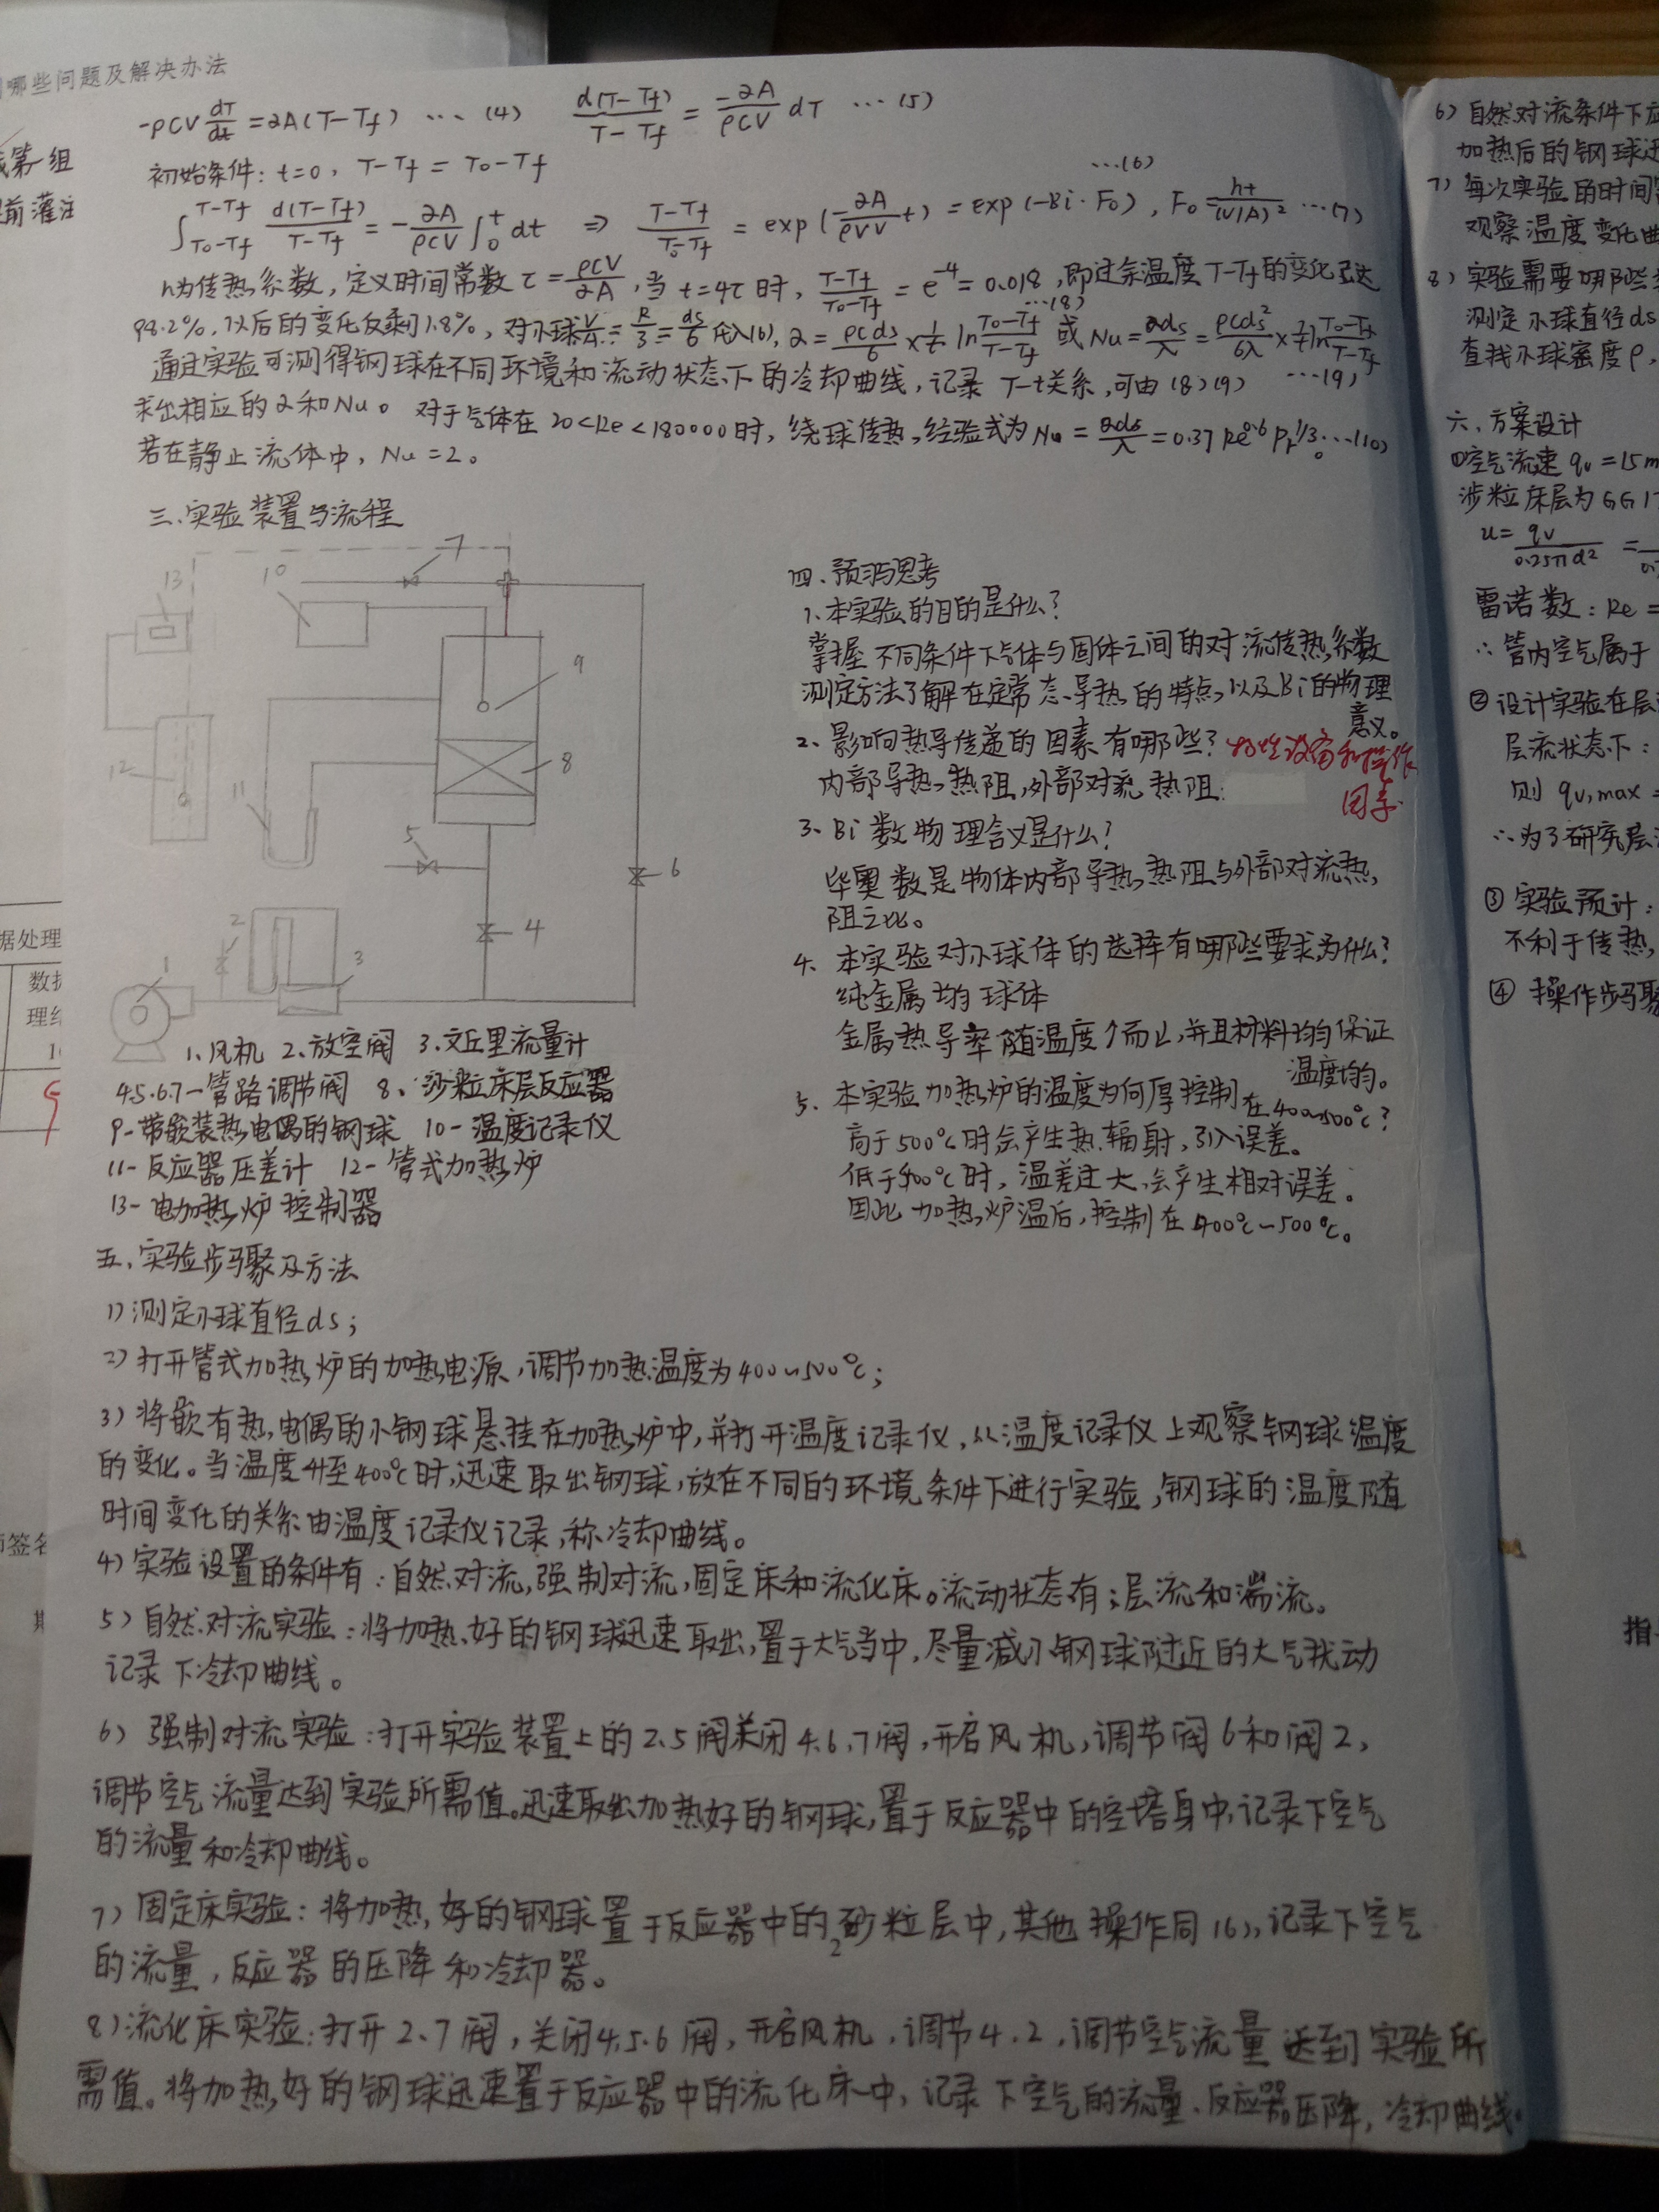 哪些问题及解决办法
第一组
前灌注
据处理
签名
-ρCV dT/dt = αA(T-Tf) … (4)  d(T-Tf)/(T-Tf) = -αA/ρCV dT … (5)
初始条件: t=0, T-Tf = T0-Tf …(6)
∫_{T0-Tf}^{T-Tf} d(T-Tf)/(T-Tf) = -αA/ρCV ∫_0^t dt ⇒ (T-Tf)/(T0-Tf) = exp(-αA/ρVV t) = exp(-Bi·Fo), Fo = ht/(V/A)² …(7)
h为传热系数,定义时间常数 τ = ρCV/αA,当 t=4τ时, (T-Tf)/(T0-Tf) = e^-4 = 0.018,即过余温度T-Tf的变化已达
98.2%,以后的变化仅剩1.8%,对小球 V/A = R/3 = ds/6 代入(6), α = ρCds/6 × 1/t ln (T0-Tf)/(T-Tf) …(8) 或 Nu = αds/λ = ρCds²/6λ × 1/t ln (T0-Tf)/(T-Tf)
通过实验可测得钢球在不同环境和流动状态下的冷却曲线,记录 T-t关系,可由(8)(9) …(9)
求出相应的α和Nu。对于气体在20<Re<180000时,绕球传热,经验式为 Nu = αds/λ = 0.37 Re^0.6 Pr^1/3 …(10)
若在静止流体中, Nu=2。
三、实验装置与流程
13
10
7
9
8
12
11
5
6
2
4
3
1
1.风机 2.放空阀 3.文丘里流量计
4.5.6.7-管路调节阀 8、沙粒床层反应器
9-带嵌装热电偶的钢球 10-温度记录仪
11-反应器压差计 12-管式加热炉
13-电加热炉控制器
四、预习思考
1.本实验的目的是什么?
掌握不同条件下气体与固体之间的对流传热系数
测定方法了解在定常态导热的特点,以及Bi的物理
意义。
2、影响热导传递的因素有哪些? 物性设备和操作
因素.
内部导热热阻,外部对流热阻.
3、Bi数物理含义是什么?
毕奥数是物体内部导热热阻与外部对流热
阻之比。
4、本实验对小球体的选择有哪些要求,为什么?
纯金属均匀球体
金属热导率随温度↑而↓,并且材料均匀保证
温度均匀。
5、本实验加热炉的温度为何厚控制在400~500℃?
高于500℃时会产生热辐射,引入误差。
低于400℃时,温差过大,会产生相对误差。
因此加热炉温后,控制在400℃~500℃。
五、实验步骤及方法
1)测定小球直径ds;
2)打开管式加热炉的加热电源,调节加热温度为400~500℃;
3)将嵌有热电偶的小钢球悬挂在加热炉中,并打开温度记录仪,从温度记录仪上观察钢球温度
的变化。当温度升至400℃时,迅速取出钢球,放在不同的环境条件下进行实验,钢球的温度随
时间变化的关系由温度记录仪记录,称冷却曲线。
4)实验设置的条件有:自然对流,强制对流,固定床和流化床。流动状态有:层流和湍流。
5)自然对流实验:将加热好的钢球迅速取出,置于大气当中,尽量减小钢球附近的大气扰动
记录下冷却曲线。
6)强制对流实验:打开实验装置上的2.5阀关闭4.6.7阀,开启风机,调节阀6和阀2,
调节空气流量达到实验所需值。迅速取出加热好的钢球,置于反应器中的空塔身中,记录下空气
的流量和冷却曲线。
7)固定床实验:将加热好的钢球置于反应器中的砂粒层中,其他操作同(6),记录下空气
的流量,反应器的压降和冷却器。
8)流化床实验:打开2、7阀,关闭4.5.6阀,开启风机,调节4.2,调节空气流量达到实验所
需值。将加热好的钢球迅速置于反应器中的流化床中,记录下空气的流量、反应器压降,冷却曲线。
6)自然对流条件下应
加热后的钢球迅
7)每次实验的时间
观察温度变化曲
8)实验需要哪些
测定小球直径ds
查找小球密度ρ,
六、方案设计
①空气流速 qv=15m
涉粒床层为GG17
u = qv/0.25πd² =
雷诺数: Re =
∴管内空气属于
②设计实验在层
层流状态下:
则 qv,max =
∴为了研究层
③实验预计:
不利于传热,
④操作步骤
指